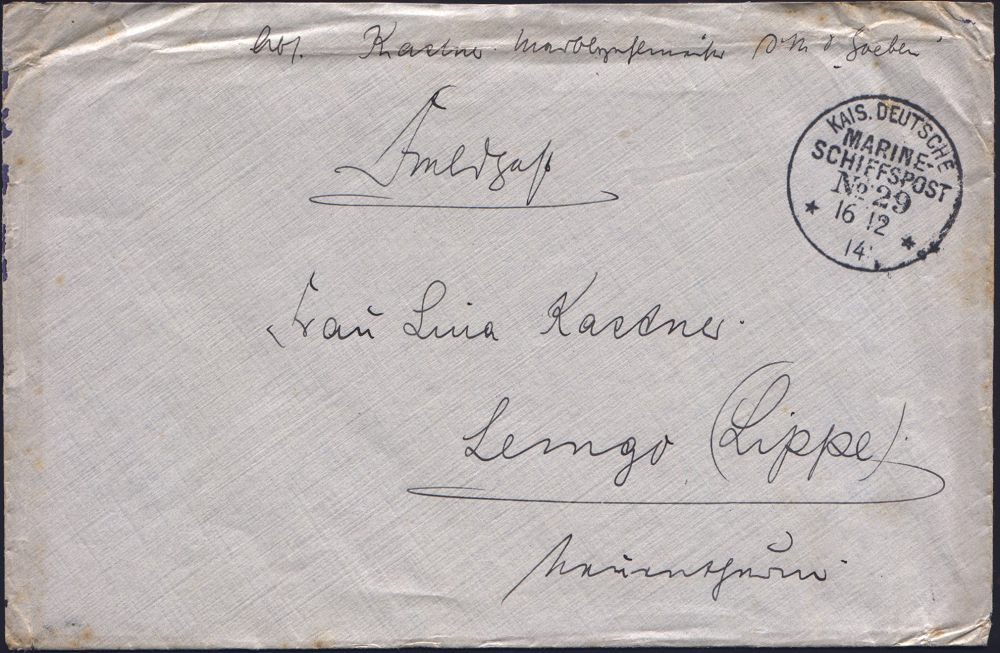 Abs. Kastner Marblzahlmeister S.M.S. "Goeben"
Feldpost
KAIS. DEUTSCHE
MARINE-
SCHIFFSPOST
No 29
16 12
14
Frau Lina Kastner.
Lemgo (Lippe).